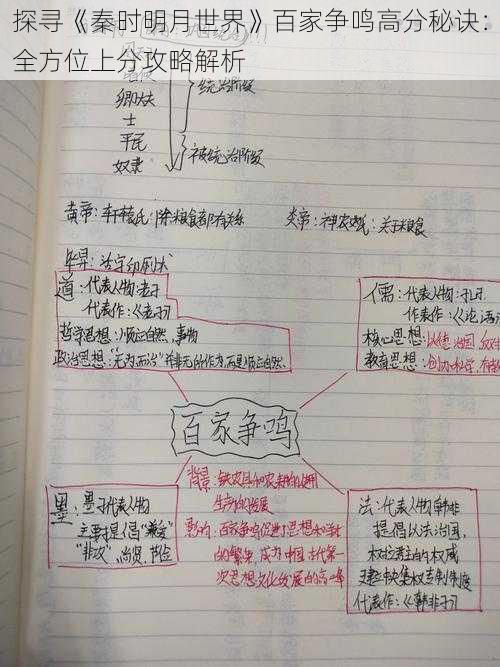 探寻《秦时明月世界》百家争鸣高分秘诀：
全方位上分攻略解析
卿大夫
士
平民
奴隶
统治阶级
被统治阶级
黄帝：轩辕氏：除粮食都有关系
炎帝：神农氏：关于粮食
毕昇：活字印刷术
道：代表人物：老子
代表作：《老子》
哲学思想：顺应自然、事物
政治思想："无为而治"并非无所作为而是顺应自然.
儒：代表人物：孔子
代表作：《论语》
核心思想：以德治国
教育思想：创办私学
百家争鸣
墨：墨子代表人物
主要提倡"兼爱"
"非攻"尚贤、节俭
背景：铁农具和农耕的使用
生产的发展
影响：百家争鸣促进了思想和学术
的繁荣，成为中国古代第一
次思想文化发展的高峰
法：代表人物韩非
提倡以法治国，
树立君主的权威
建立中央集权专制制度
代表作：《韩非子》